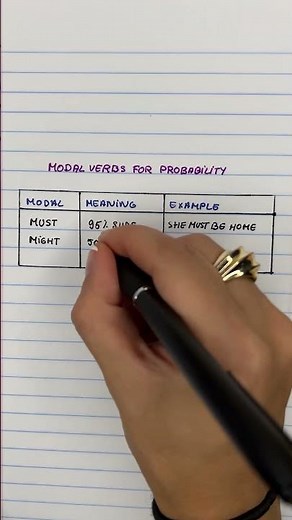 MODAL VERBS FOR PROBABILITY
MODAL MEANING EXAMPLE
MUST 95% SURE SHE MUST BE HOME
MIGHT